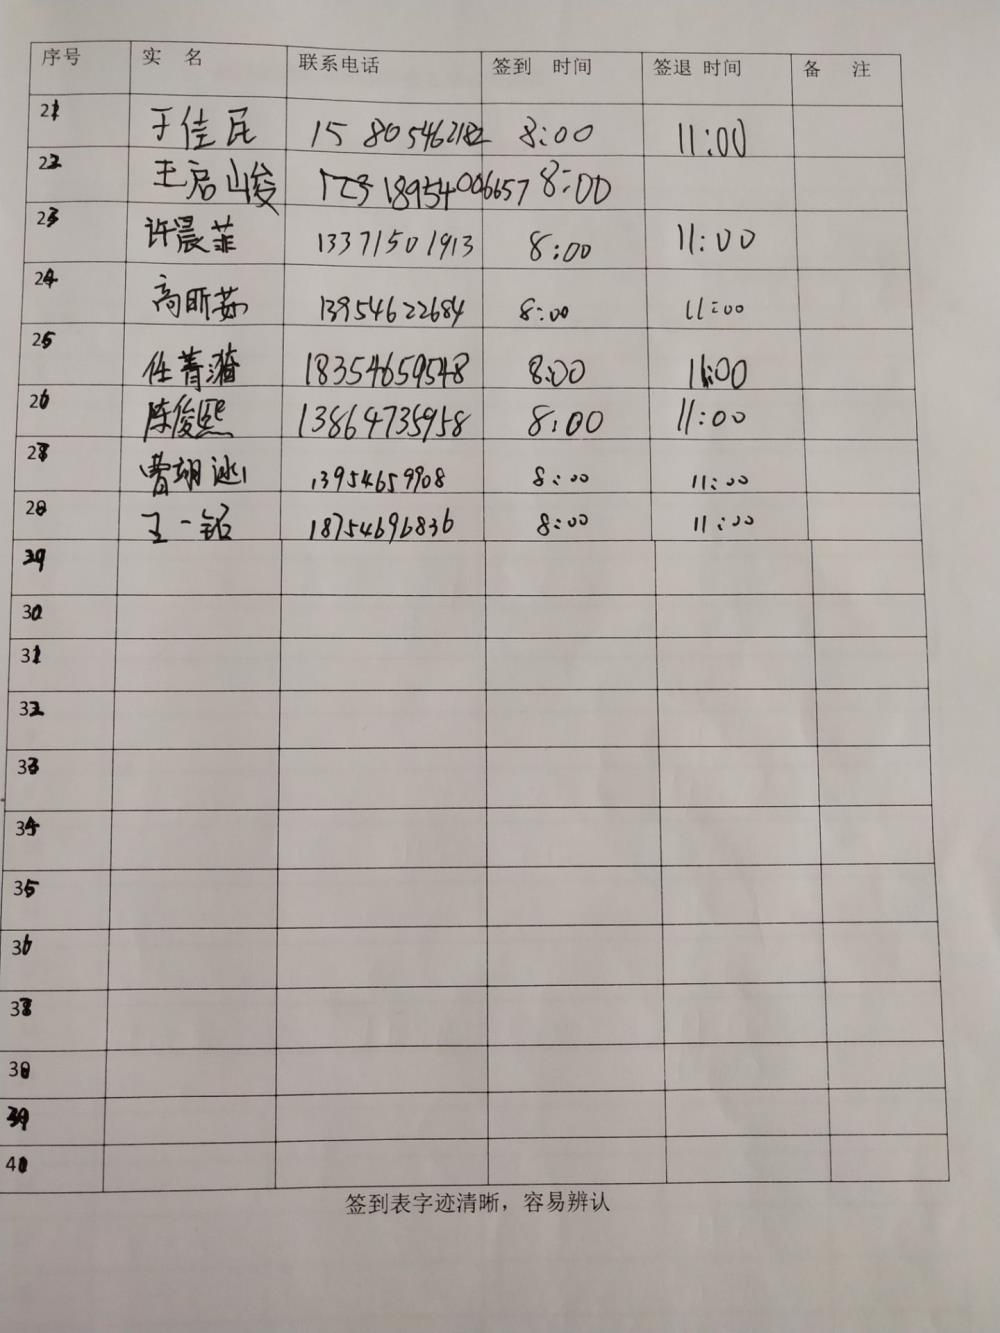 序号 实 名 联系电话 签到 时间 签退 时间 备 注
21 于佳民 15805462182 8:00 11:00
22 王启峻 18954006657 8:00
23 许晨菲 13371501913 8:00 11:00
24 高昕茹 13954622684 8:00 11:00
25 任菁潴 18354659548 8:00 11:00
26 陈俊熙 13864735958 8:00 11:00
27 曹翊 13954659908 8:00 11:00
28 王一铭 18754696836 8:00 11:00
29
30
31
32
33
34
35
36
37
38
39
40
签到表字迹清晰，容易辨认